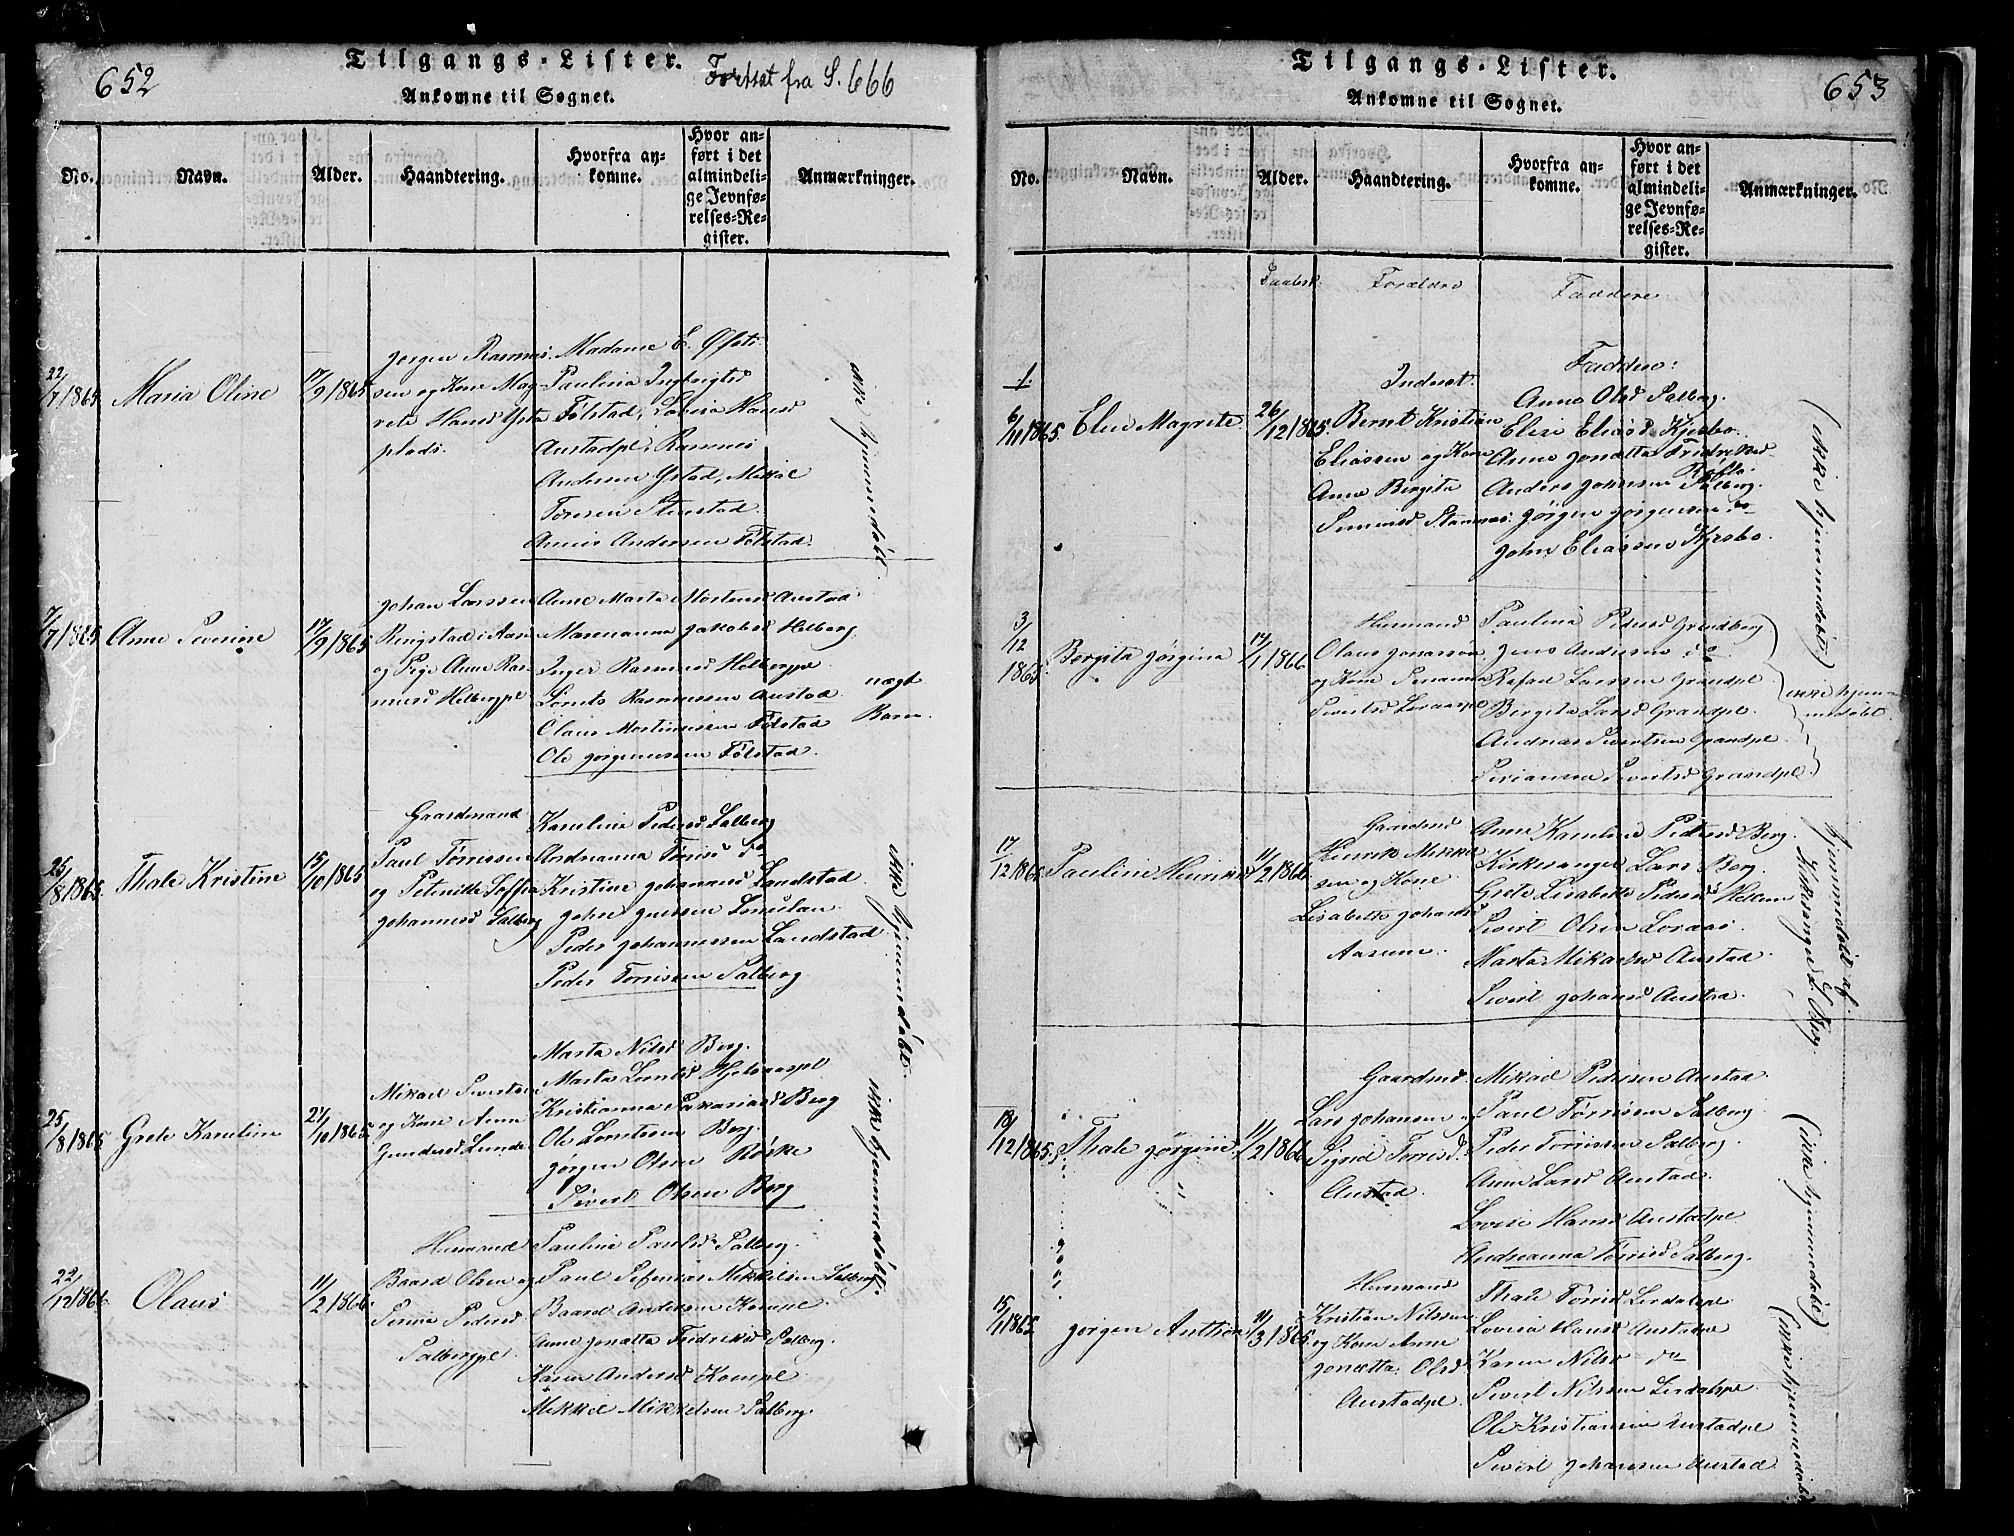 652
Tilgangs-Lister.
Fortsat fra S. 666
Ankomne til Sognet.
No.
Navn.
Alder.
Haandtering.
Hvorfra an-
komne.
Hvor an-
ført i det
almindeli-
ge Jevnfø-
relses-Re-
gister.
Anmærkninger.
22/7 1865
Maria Oline
17/9 1865
Jørgen Rasmus-
sen og Kone Mag-
rete Hansd Ystad-
plads.
Madame E. Øfsti
Paulina Ingbrigtsd
Følstad, Lovisa Hansd
Austadpl, Rasmus
Andersen Ystad, Mikal
Toresen Steustad
Annes Andersen Følstad.
ikke hjemmedøbt.
7/7 1865
Anne Severine
17/9 1865
Johan Larssen
Ringstad i Aasen
og Pige Anne Ras-
musd Helbergpl
Anne Marta Mortensd Austad
Marenanna Jakobsd Helberg
Inger Rasmusd Helbergpl
Lornts Rasmussen Austad
Olaus Mortinussen Følstad
Ole Jørgenussen Følstad.
uægt
Barn.
25/8 1865
Thale Kristine
15/10 1865
Gaardmand
Paul Tørrissen
og Petnille Soffia
Johannesd Salberg
Karoline Pedersd Salberg
Andrianna Tørrisd do
Kristine Johannesd Landstad
John Jnessen
Peder Johannessen Landstad
Peder Tørrissen Salberg
ikke hjemmedøbt.
25/8 1865
Grete Karoline
21/10 1865
Mikael Sivertsen
og Kone Anne
Gundersd Lunde
Marta Nilsd Berg.
Marta Lorntsd Hjelmaaspl
Kristianna Sakariasd Berg
Ole Lorntsen Berg.
Jørgen Olsen Røske
Sivert Olsen Berg
ikke hjemmedøbt.
22/12 1866
Olaus
11/2 1866.
Husmand
Baard Olsen og
Serina Pedersd
Salbergpl
Paulina Paulsd Salberg.
Paul Mikkelsen Salberg
Baard Andersen Kompl.
Anne Jonetta Fredriksd Salberg.
Karen Andersd Kompl
Mikkel Mikkelsen Salberg.
653
Tilgangs-Lister.
Ankomne til Sognet.
No.
Navn.
Alder.
Haandtering.
Hvorfra an-
komne.
Hvor an-
ført i det
almindeli-
ge Jevnfø-
relses-Re-
gister.
Anmærkninger.
Daabsd.
Forældre
Faddere
1.
6/11 1865.
Elen Magrete
26/12 1865.
Inderst.
Bernt Kristian
Eliassen og Kone
Anne Bergita
Simonsd Stamnes.
Faddere:
Anne Olsd Salberg.
Elise Eliasd Kjesbo
Anne Jonetta Fredriksd
Røflo.
Anders Johnsen Salberg.
Jørgen Jørgensen do
John Eliassen Kjesbo.
(ikke hjemmedøbt)
3/12 1865
Bergita Jørgina
14/1 1866
Husmand
Olaus Jonassen
og Kone Susanna
Sivertsd Loraaspl
Paulina Pedersd Grandberg
Jens Andersen do
Rafael Larssen Grandpl
Bergita Larsd Grandpl.
Andreas Sivertsen Grandpl
Serianna Sivertsd Grandpl.
ikke hjem-
medøbt.
17/12 1865
Pauline Heinrikke
11/2 1866
Gaardmd
Henrik Mikkel
sen og Kone
Lisabette Johansd
Aasum.
Anne Karoline Pedersd Berg.
Kirkesanger Lars Berg.
Grete Lisabette Pedersd Hellem
Sivert Olsen Loraas.
Marta Mikaelsd Austad
Sivert Johansd Austad.
hjemmedøbt af
Kirkesanger L. Berg
18/12 1865.
Thale Jørgine
11/2 1866
Gaardmd.
Lars Johansen og
Sigrid Torrisd.
Austad.
Mikael Pedersen Austad
Paul Tørrissen Salberg
Peder Tørrissen Salberg.
Anne Larsd Austad.
Lovise Hansd Austadpl
Andreanna Tørrisd Salberg.
(ikke hjemmedøbt)
15/11 1865
Jørgen Anthon
11/3 1865
Husmand
Kristian Nilssen
og Kone Anne
Jonetta Olsd
Austadpl.
Thale Tørrisd Lerdalspl
Lovisa Hansd Austadpl
Karen Nilsd do
Sivert Nilssen Lerdalspl.
Ole Kristiansen Austadpl
Sivert Johansen Austad
(ikke hjemmedøbt)